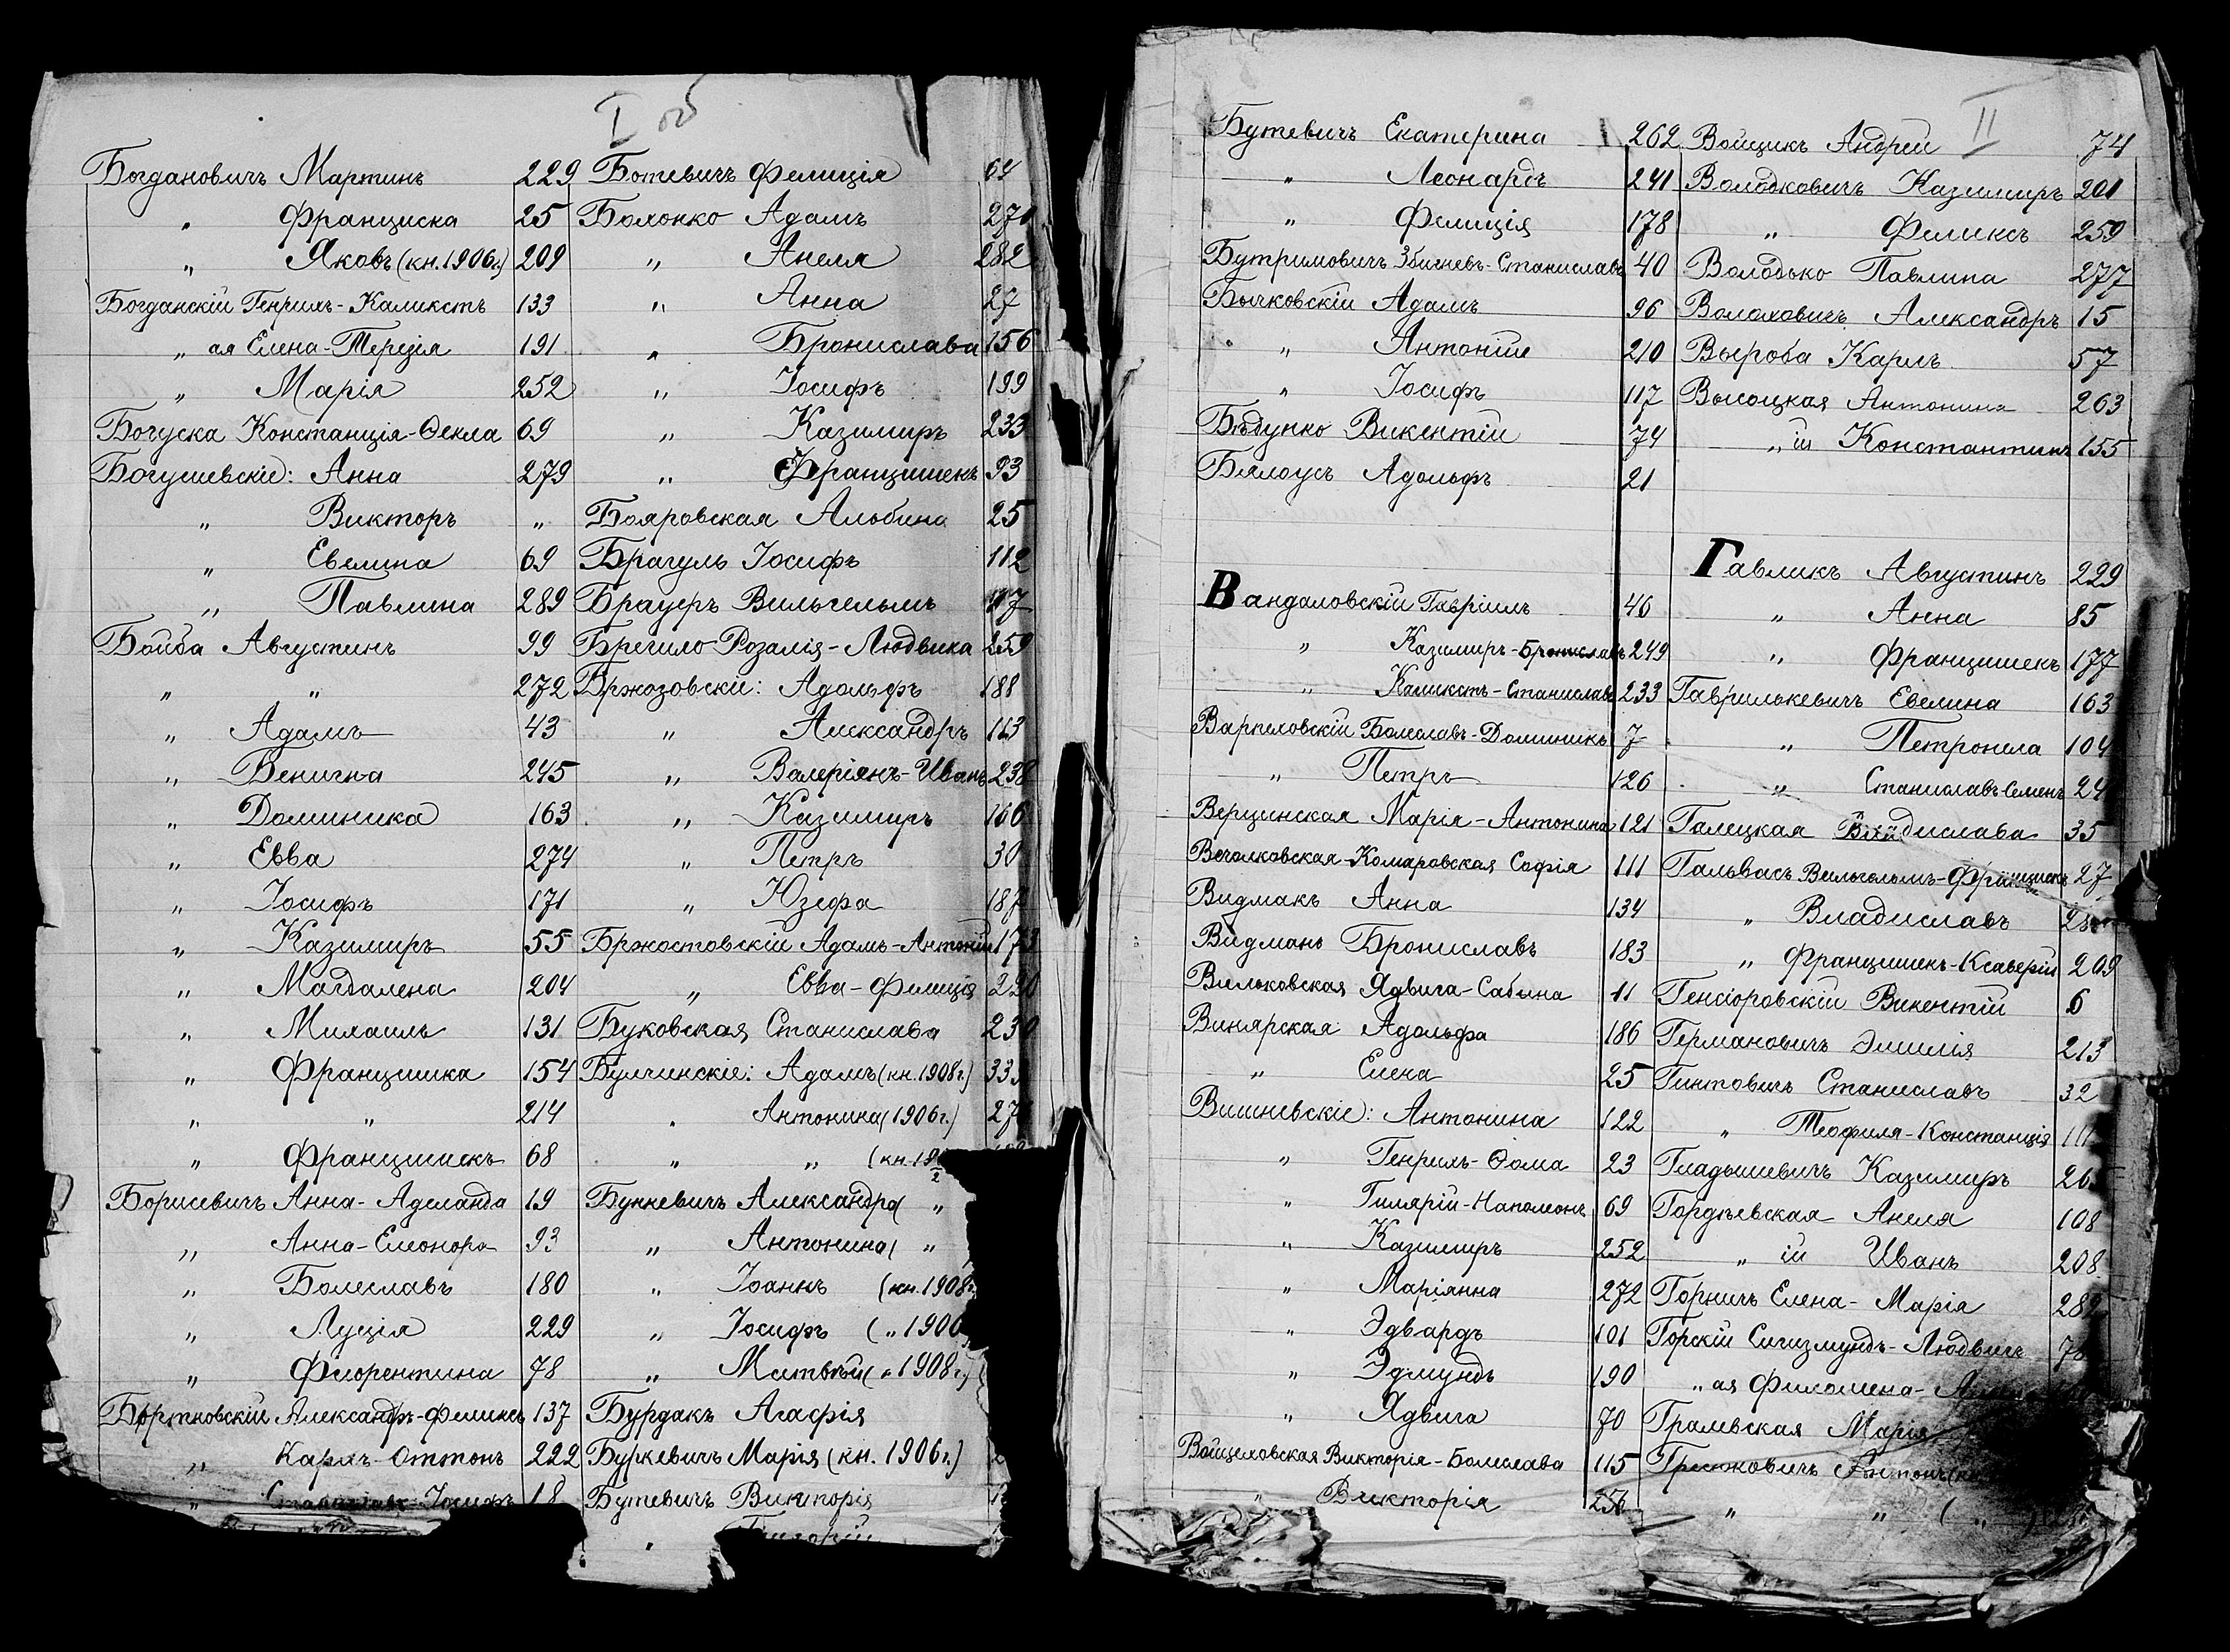 I об
Богдановичъ Мартинъ 229
„ Франциска 25
„ Яковъ (кн. 1906 г.) 209
Богданскій Генрихъ-Каликстъ 133
„ ая Елена-Терезія 191
„ Марія 252
Богуска Констанція-Ѳекла 69
Богушевскіе: Анна 279
„ Викторъ „
„ Евелина 69
„ Павлина 289
Бойба Августинъ 99
„ „ 272
„ Адамъ 43
„ Бенигна 245
„ Доминика 163
„ Евва 274
„ Іосифъ 171
„ Казимиръ 55
„ Магдалена 204
„ Михаилъ 131
„ Францишка 154
„ „ 214
„ Францишекъ 68
Борисевичъ Анна-Аделаида 19
„ Анна-Елеонора 93
„ Болеславъ 180
„ Луція 229
„ Флорентина 78
Бортновскій Александръ-Феликсъ 137
„ Карлъ-Оттонъ 222
„ Станиславъ-Іосифъ 18
Ботевичъ Фелиція 64
Болонко Адамъ 270
„ Анеля 282
„ Анна 27
„ Бронислава 156
„ Іосифъ 199
„ Казимиръ 233
„ Францишекъ 93
Бояровская Альбина 25
Брагуль Іосифъ 112
Брауеръ Вильгельмъ
Бречило Розалія-Людвика 259
Бржозовскіе: Адольфъ 188
„ Александръ 113
„ Валеріянъ-Иванъ 238
„ Казимиръ 166
„ Петръ 30
„ Юзефа 187
Бржостовскій Адамъ-Антоній 173
„ Евва-Фелиція 220
Буковская Станислава 230
Булчинскіе: Адамъ (кн. 1908 г.) 33
„ Антонина (1906 г.) 27
„ „ (кн. 19
Бункевичъ Александра ( „
„ Антонина ( „
„ Іоаннъ (кн. 1908 г.
„ Іосифъ ( „ 1906
„ Матвѣй ( „ 1908 г.)
Бурдакъ Агафія
Буркевичъ Марія (кн. 1906 г.)
Бутевичъ Викторія
„ Григорій
II
Бутевичъ Екатерина 262
„ Леонардъ 241
„ Фелиція 178
Бутримовичъ Збигневъ-Станиславъ 40
Бычковскій Адамъ 96
„ Антоній 210
„ Іосифъ 117
Бѣдунко Викентій 74
Бялоусъ Адольфъ 21
Вандаловскій Гавріилъ 46
„ Казимиръ-Брониславъ 249
„ Каликстъ-Станиславъ 233
Варпеховскій Болеславъ-Доминикъ 7
„ Петръ 126
Верцинская Марія-Антонина 121
Вечолковская-Комаровская Софія 111
Видмакъ Анна 134
Видманъ Брониславъ 183
Вильковская Ядвига-Сабина 11
Винярская Адольфа 186
„ Елена 25
Вишневскіе: Антонина 122
„ Генрихъ-Ѳома 23
„ Гилярій-Наполеонъ 69
„ Казимиръ 252
„ Маріянна 272
„ Эдвардъ 101
„ Эдмундъ 190
„ Ядвига 70
Войцеховская Викторія-Болеслава 115
„ Викторія 256
Войщикъ Андрей 74
Володковичъ Казимиръ 201
„ Феликсъ 259
Володько Павлина 277
Волоховичъ Александръ 15
Выроба Карлъ 57
Высоцкая Антонина 263
„ ій Константинъ 155
Гавликъ Августинъ 229
„ Анна 85
„ Францишекъ 177
Гаврилькевичъ Евелина 163
„ Петронела 104
„ Станиславъ-Семенъ 24
Галецкая Владислава 35
Гальвасъ Вильгельмъ-Францискъ 27
„ Владиславъ
„ Францишекъ-Ксаверій 209
Генсіоровскій Викентій 6
Германовичъ Эмилія 213
Гинтовичъ Станиславъ 32
„ Теофиля-Констанція
Гладышевичъ Казимиръ 26
Гордѣевская Анеля 108
„ ій Иванъ 208
Горничъ Елена-Марія 282
Горскій Сигизмундъ-Людвигъ 78
„ ая Филомена-
Грамвская Марія
Гресюковичъ Антонъ
„ „ ( „